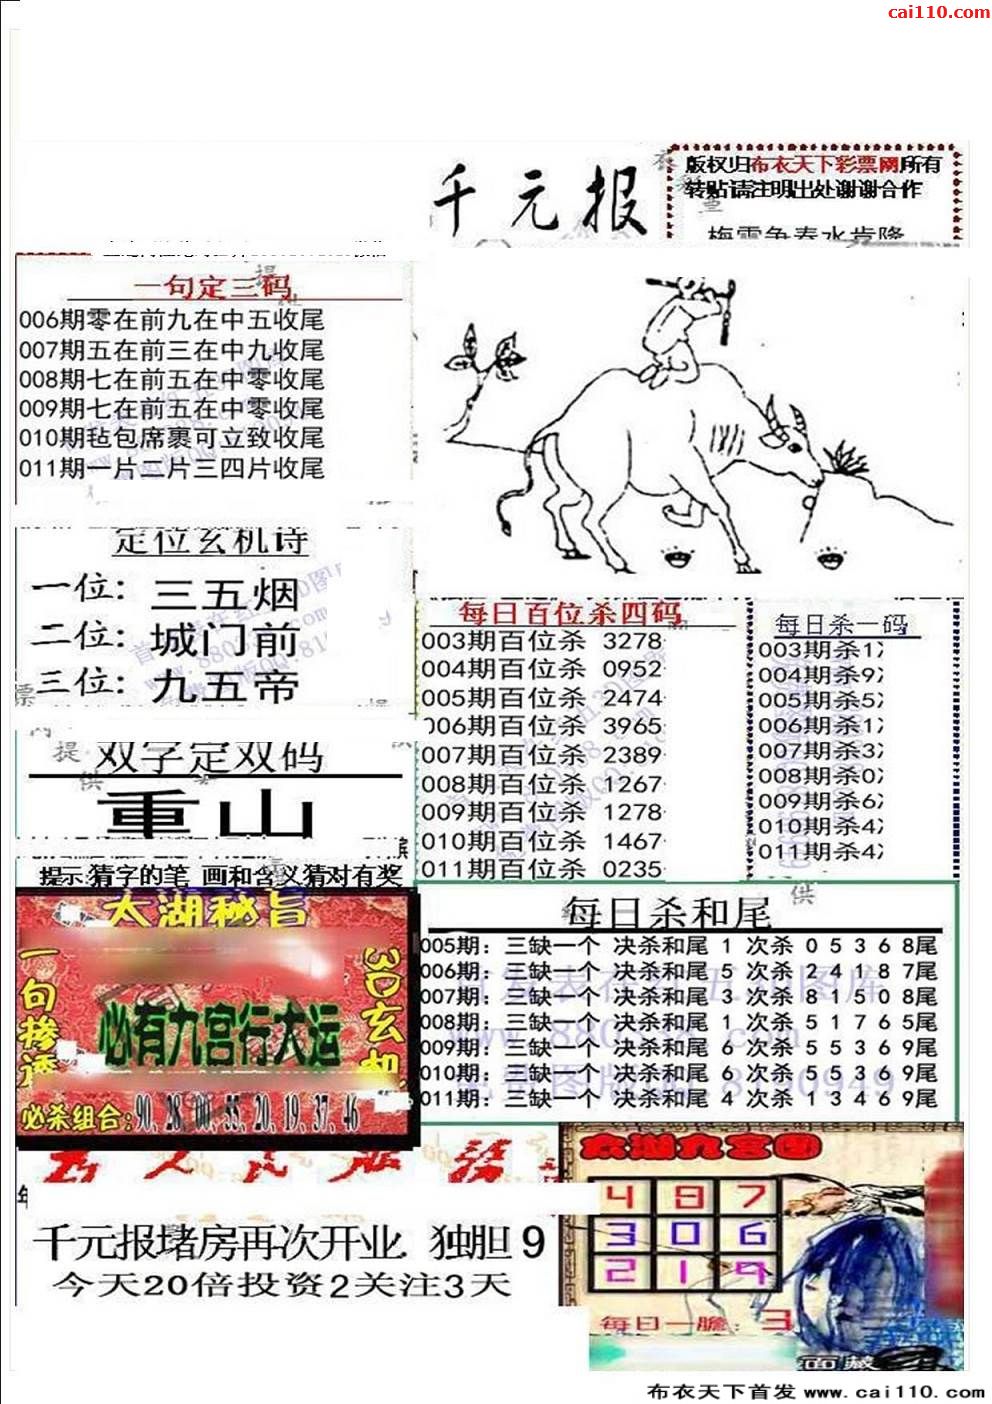 cai110.com
千元报
版权归布衣天下彩票网所有
转贴请注明出处谢谢合作
梅雪争春水肯降
一句定三码
006期零在前九在中五收尾
007期五在前三在中九收尾
008期七在前五在中零收尾
009期七在前五在中零收尾
010期毡包席裹可立致收尾
011期一片二片三四片收尾
定位玄机诗
一位：三五烟
二位：城门前
三位：九五帝
双字定双码
重山
提示:猜字的笔 画和含义猜对有奖
每日百位杀四码
003期百位杀 3278
004期百位杀 0952
005期百位杀 2474
006期百位杀 3965
007期百位杀 2389
008期百位杀 1267
009期百位杀 1278
010期百位杀 1467
011期百位杀 0235
每日杀一码
003期杀1
004期杀9
005期杀5
006期杀1
007期杀3
008期杀0
009期杀6
010期杀4
011期杀4
每日杀和尾
005期：三缺一个 决杀和尾 1 次杀 0 5 3 6 8尾
006期：三缺一个 决杀和尾 5 次杀 2 4 1 8 7尾
007期：三缺一个 决杀和尾 3 次杀 8 1 5 0 8尾
008期：三缺一个 决杀和尾 1 次杀 5 1 7 6 5尾
009期：三缺一个 决杀和尾 6 次杀 5 5 3 6 9尾
010期：三缺一个 决杀和尾 6 次杀 5 5 3 6 9尾
011期：三缺一个 决杀和尾 4 次杀 1 3 4 6 9尾
太湖秘旨
一句掺透
3D玄机
必有九宫行大运
必杀组合:90,28,00,55,20,19,37,46
千元报堵房再次开业 独胆 9
今天20倍投资2关注3天
太湖九宫图
4 8 7
3 0 6
2 1 9
每日一胆：3
布衣天下首发 www.cai110.com